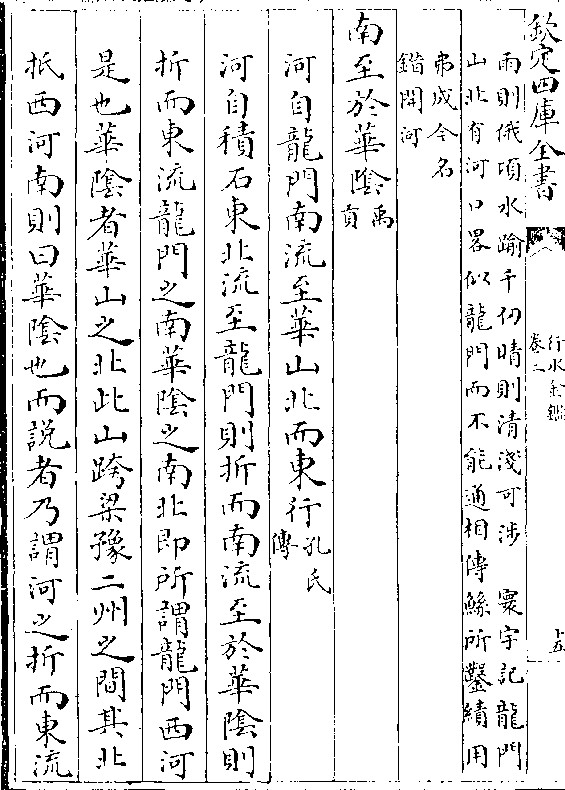 欽定四庫全書
行水金鑑
卷二
十五
雨則俄頃水踰千仞晴則清淺可涉　寰宇記龍門
山北有河口畧似龍門而不能通相傳鯀所鑿績用
弗成今名
錯開河
南至於華陰禹貢
河自龍門南流至華山北而東行孔氏傳
河自積石東北流至龍門則折而南流至於華陰則
折而東流龍門之南華陰之南北即所謂龍門西河
是也華陰者華山之北此山跨梁豫二州之間其北
抵西河南則曰華陰也而說者乃謂河之折而東流